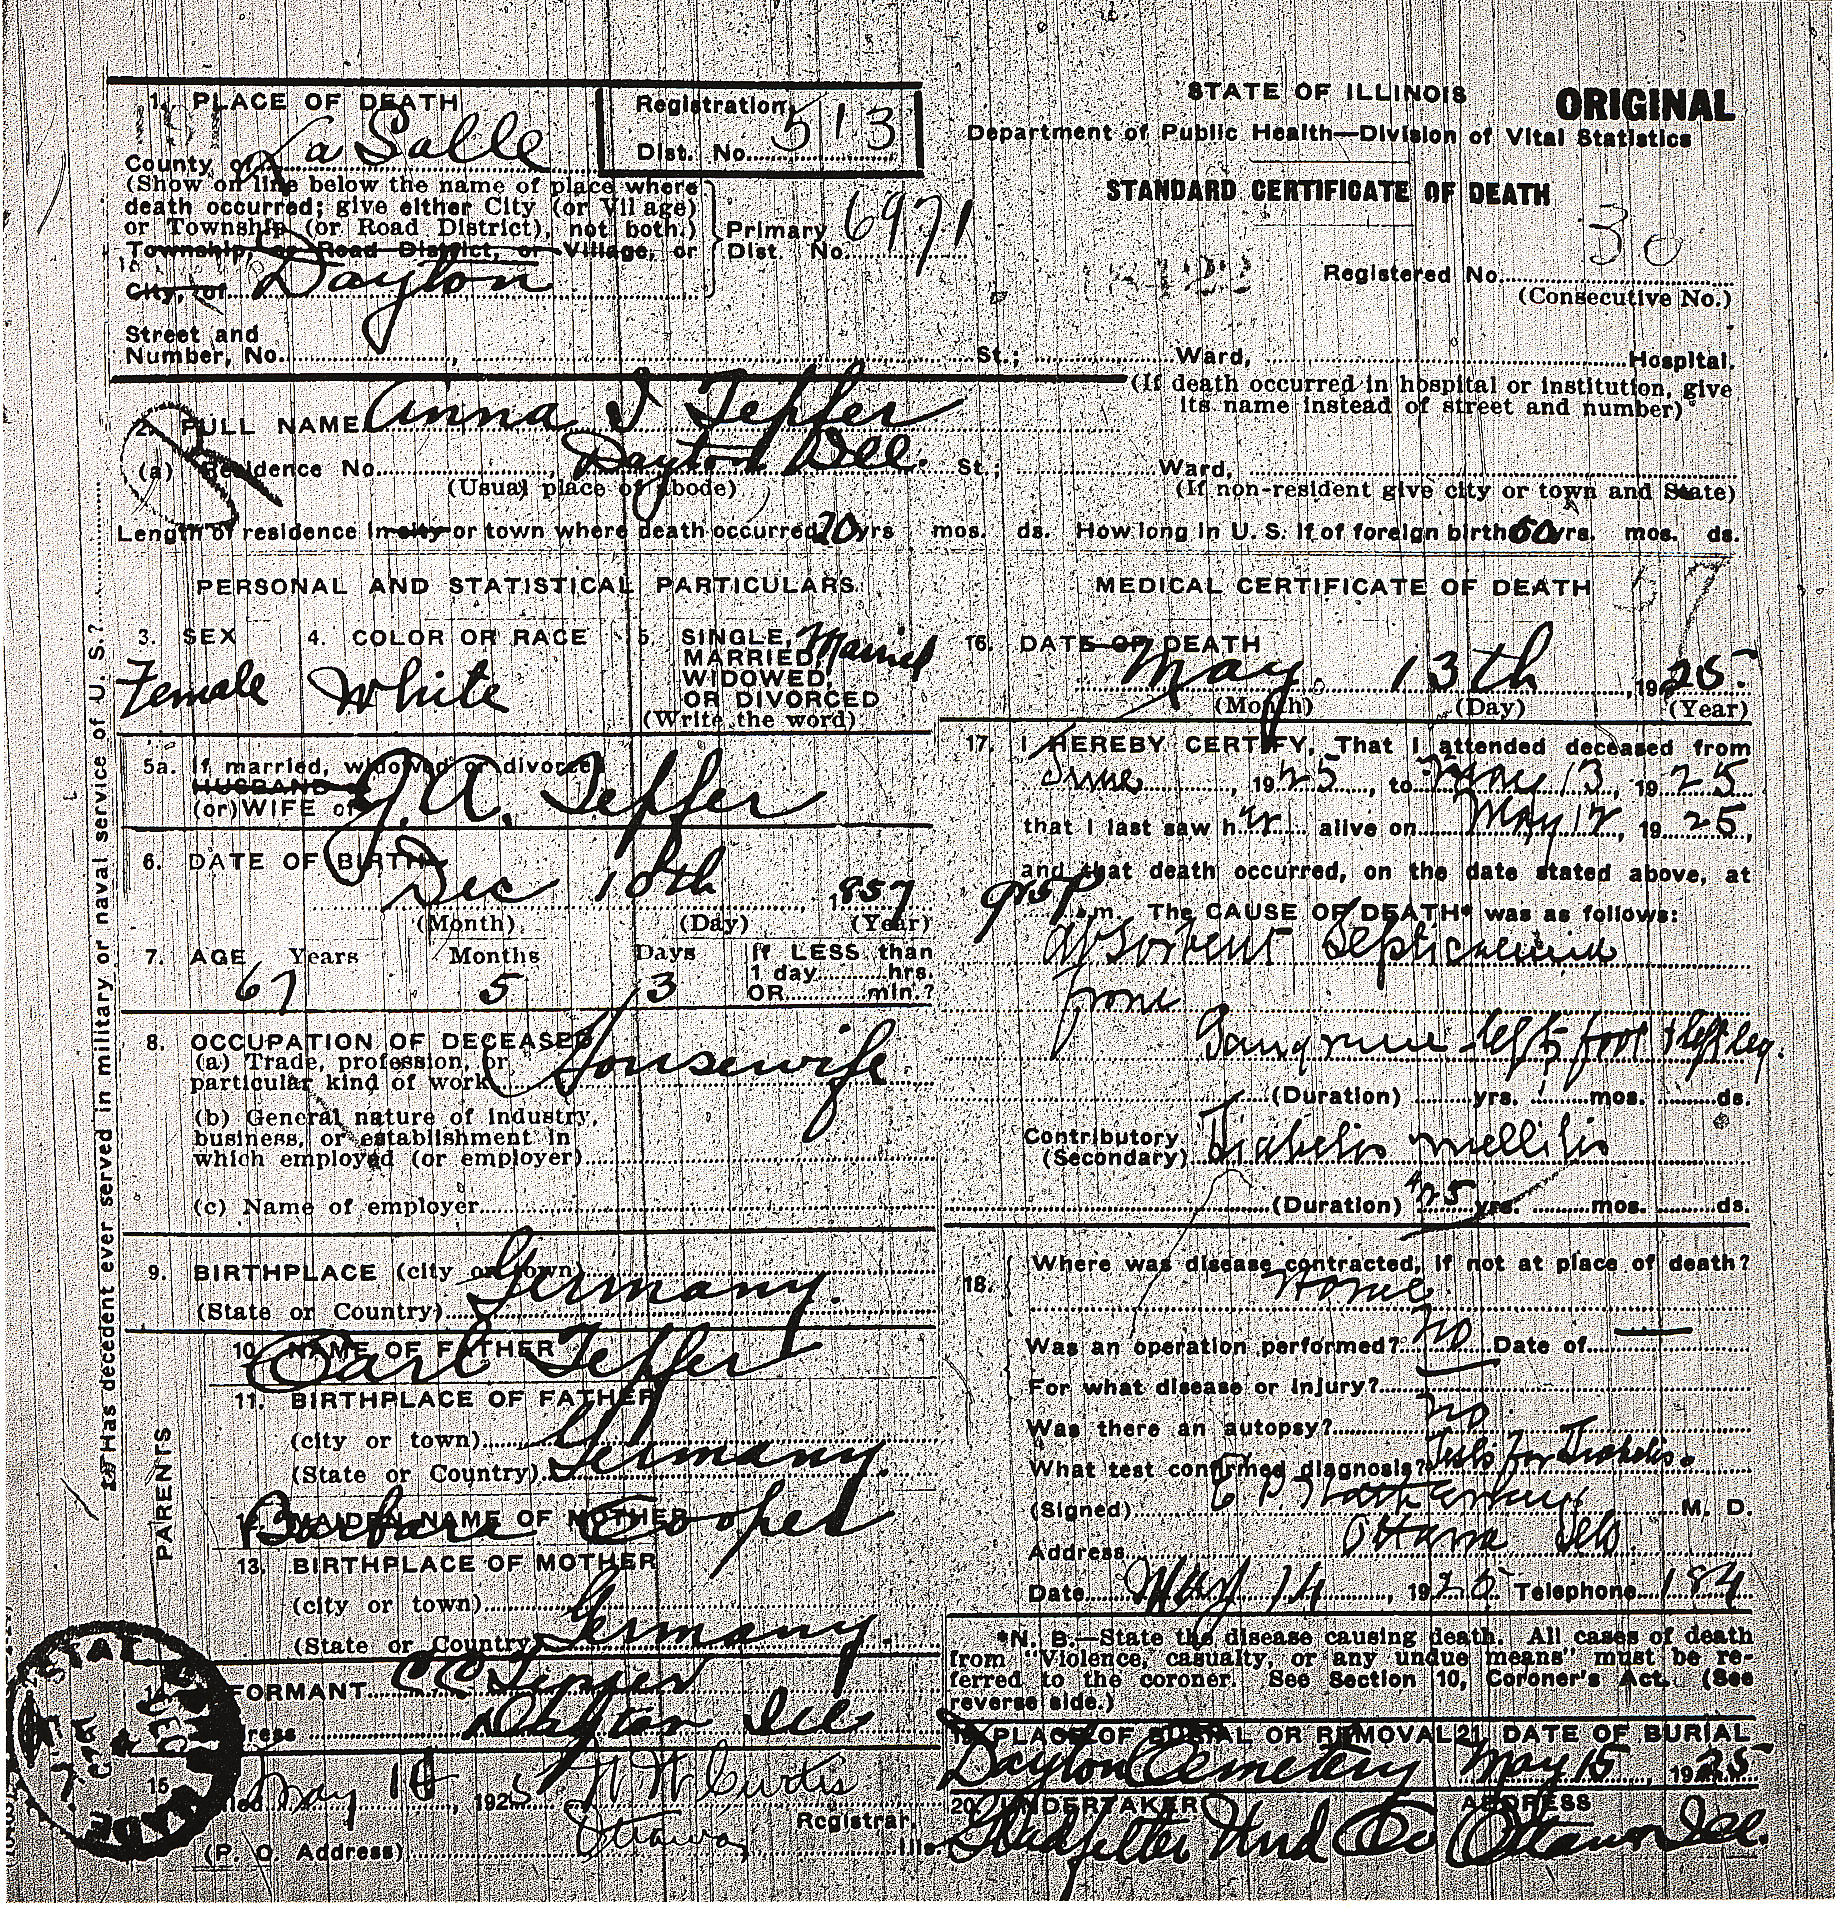 1. PLACE OF DEATH
County of La Salle
Registration
Dist. No. 513
(Show on line below the name of place where
death occurred; give either City (or Village)
or Township (or Road District), not both.)
Township, or Road District, or Village, or
City, of Dayton
Primary
Dist. No. 6971
Street and
Number, No. , St.; Ward, Hospital.
STATE OF ILLINOIS
ORIGINAL
Department of Public Health—Division of Vital Statistics
STANDARD CERTIFICATE OF DEATH
30
Registered No.
(Consecutive No.)
(If death occurred in hospital or institution, give
its name instead of street and number)
2. FULL NAME Anna Tepfer
(a) Residence No. , Dayton Ill. St.; Ward,
(Usual place of abode)
(If non-resident give city or town and State)
Length of residence in city or town where death occurred yrs mos. ds. How long in U. S. if of foreign birth yrs. mos. ds.
PERSONAL AND STATISTICAL PARTICULARS
3. SEX
Female
4. COLOR OR RACE
White
5. SINGLE, Married
MARRIED,
WIDOWED,
OR DIVORCED
(Write the word)
5a. If married, widowed or divorced
HUSBAND
(or) WIFE of J. A. Tepfer
6. DATE OF BIRTH
Dec 10th 1857
(Month) (Day) (Year)
7. AGE Years Months Days
67 5 3
If LESS than
1 day......hrs.
OR......min.?
8. OCCUPATION OF DECEASED
(a) Trade, profession, or
particular kind of work Housewife
(b) General nature of industry,
business, or establishment in
which employed (or employer)
(c) Name of employer
9. BIRTHPLACE (city or town)
(State or Country) Germany.
PARENTS
10. NAME OF FATHER
Carl Tepfer
11. BIRTHPLACE OF FATHER
(city or town)
(State or Country) Germany.
12. MAIDEN NAME OF MOTHER
Barbara
13. BIRTHPLACE OF MOTHER
(city or town)
(State or Country) Germany.
FORMANT
ress Dayton Ill
15
May 1925 Curtis
Registrar.
(P. O. Address) Ottawa, Ills.
Has decedent ever served in military or naval service of U. S.?
MEDICAL CERTIFICATE OF DEATH
16. DATE OF DEATH
May 13th, 1925.
(Month) (Day) (Year)
17. I HEREBY CERTIFY, That I attended deceased from
, 1925, to May 13, 1925
that I last saw her alive on May 12, 1925,
and that death occurred, on the date stated above, at
m. The CAUSE OF DEATH* was as follows:
absorbent Septicaemia
from
Gangrene left foot & left leg.
(Duration) yrs. 1 mos. ds.
Contributory
(Secondary) Diabetis mellitis
(Duration) yrs. mos. ds.
18. Where was disease contracted, if not at place of death?
Home
Was an operation performed? no Date of —
For what disease or injury?
Was there an autopsy? no
What test confirmed diagnosis? Tests for Diabetis.
(Signed) M. D.
Address Ottawa Ills.
Date May 14, 1925 Telephone 184
*N. B.—State the disease causing death. All cases of death
from "Violence, casualty, or any undue means" must be re-
ferred to the coroner. See Section 10, Coroner's Act. (See
reverse side.)
19. PLACE OF BURIAL OR REMOVAL 21. DATE OF BURIAL
Dayton Cemetery May 15, 1925
20. UNDERTAKER ADDRESS
Gladfelter Und Co Ottawa Ill.